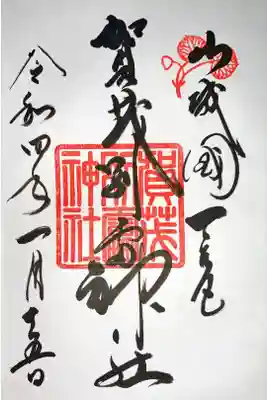 山城國一之宮
賀茂別雷神社
賀茂
別雷
神社
令和四年一月十五日